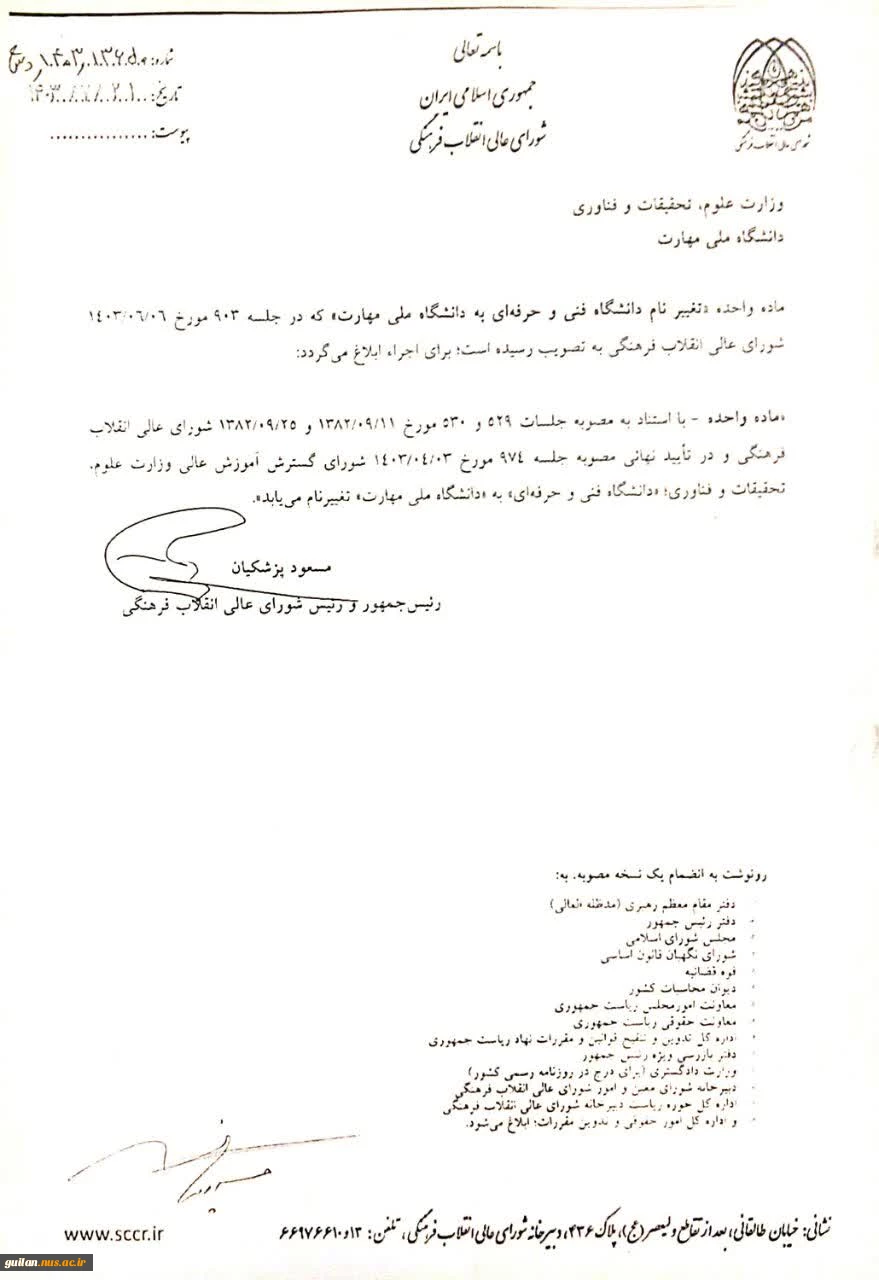 باسمه تعالی
جمهوری اسلامی ایران
شورای عالی انقلاب فرهنگی
شورای عالی انقلاب فرهنگی
شماره:
تاریخ:
پیوست: ................
وزارت علوم، تحقیقات و فناوری
دانشگاه ملی مهارت
ماده واحده «تغییر نام دانشگاه فنی و حرفه‌ای به دانشگاه ملی مهارت» که در جلسه ۹۰۳ مورخ ۱۴۰۳/۰۶/۰۶
شورای عالی انقلاب فرهنگی به تصویب رسیده است؛ برای اجراء ابلاغ می‌گردد:
«ماده واحده - با استناد به مصوبه جلسات ۵۲۹ و ۵۳۰ مورخ ۱۳۸۲/۰۹/۱۱ و ۱۳۸۲/۰۹/۲۵ شورای عالی انقلاب
فرهنگی و در تأیید نهائی مصوبه جلسه ۹۷۴ مورخ ۱۴۰۳/۰۴/۰۳ شورای گسترش آموزش عالی وزارت علوم،
تحقیقات و فناوری؛ «دانشگاه فنی و حرفه‌ای» به «دانشگاه ملی مهارت» تغییرنام می‌یابد».
مسعود پزشکیان
رئیس‌جمهور و رئیس شورای عالی انقلاب فرهنگی
رونوشت به انضمام یک نسخه مصوبه، به:
دفتر مقام معظم رهبری (مدظله العالی)
دفتر رئیس جمهور
مجلس شورای اسلامی
شورای نگهبان قانون اساسی
قوه قضائیه
دیوان محاسبات کشور
معاونت امورمجلس ریاست جمهوری
معاونت حقوقی ریاست جمهوری
اداره کل تدوین و تنقیح قوانین و مقررات نهاد ریاست جمهوری
دفتر بازرسی ویژه رئیس جمهور
وزارت دادگستری (برای درج در روزنامه رسمی کشور)
دبیرخانه شورای معین و امور شورای عالی انقلاب فرهنگی
اداره کل حوزه ریاست دبیرخانه شورای عالی انقلاب فرهنگی
و اداره کل امور حقوقی و تدوین مقررات؛ ابلاغ می‌شود.
نشانی: خیابان طالقانی، بعد از تقاطع ولیعصر (عج)، پلاک ۴۳۶، دبیرخانه شورای عالی انقلاب فرهنگی، تلفن: ۱۳و۶۶۹۷۶۶۱۰
www.sccr.ir
guilan.nus.ac.ir